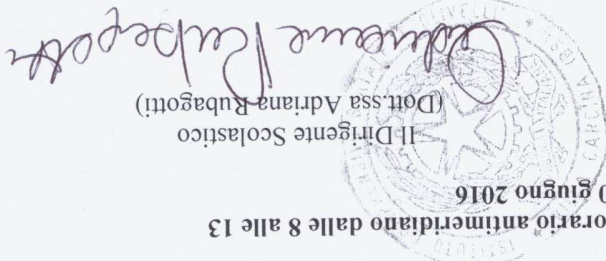 orario antimeridiano dalle 8 alle 13
0 giugno 2016
Il Dirigente Scolastico
(Dott.ssa Adriana Rubagotti)
Adriana Rubagotti